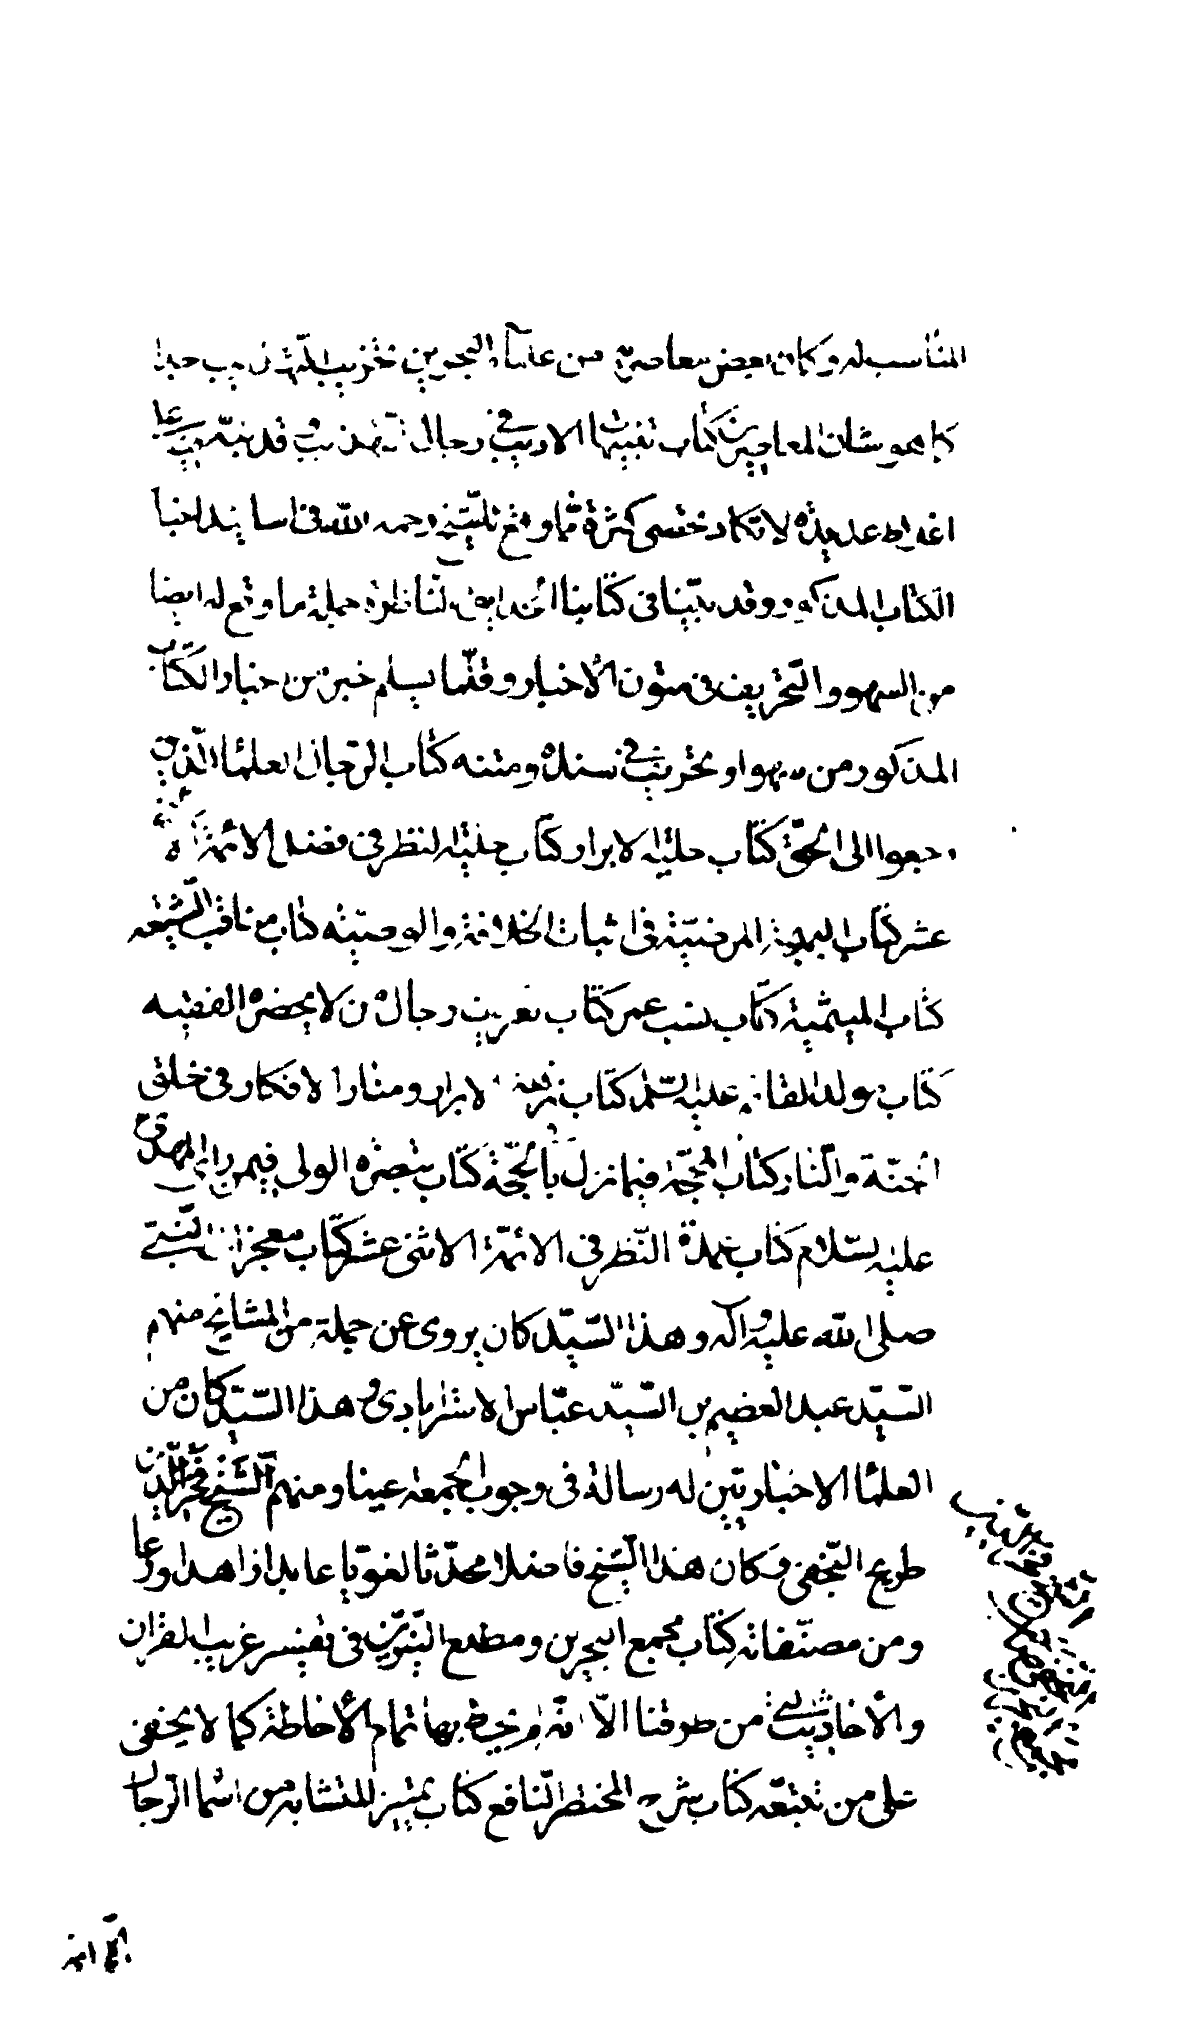 المناسب له وكان بعض معاصريه من علماء البحرين
كما هو شان المعاصرين كتاب تنبيهات الاريب في رجال التهذيب وقد نبه فيه على
اغلاط عديدة لا تكاد تحصى كثرة مما وقع للشيخ رحمه الله في اسانيد اخبار
الكتاب المذكور وقد نبهنا في كتابنا الحدايق الناظرة جملة ما وقع له ايضا
من السهو والتحريف في متون الاخبار وقلما يسلم خبر من اخبار الكتاب
المذكور من سهو او تحريف في سنده ومتنه كتاب الرجال العلماء الذين
رجعوا الى الحق كتاب حلية الابرار كتاب حلية النظر في فضل الائمة
عشر كتاب البهجة المرضية في اثبات الخلافة والوصية كتاب مناقب الشيعة
كتاب الميثمية كتاب نسب عمر كتاب تعريف رجال من لا يحضره الفقيه
كتاب مولد القائم عليه السلم كتاب نزهة الابرار ومنار الافكار في خلق
الجنة والنار كتاب المحجة فيما نزل بالحجة كتاب تبصرة الولي فيمن راى المهدي
عليه السلام كتاب عمدة النظر في الائمة الاثنى عشر كتاب معجزات النبي
صلى الله عليه واله وهذا السيد كان يروى عن جملة من المشايخ منهم
السيد عبد العضيم بن السيد عباس الاسترابادى وهذا السيد كان من
العلماء الاخباريين له رسالة فى وجوب الجمعة عينا ومنهم الشيخ فخر الدين
طريح النجفى وكان هذا الشيخ فاضلا محدثا لغويا عابدا زاهدا ورعا
ومن مصنفاته كتاب مجمع البحرين ومطلع النيرين في تفسير غريب القران
والاحاديث التي من طرقنا الا انه لم يحط بها تمام الاحاطة كما لا يخفى
على من تتبعه كتاب شرح المختصر النافع كتاب تميز المتشابه من اسماء الرجال